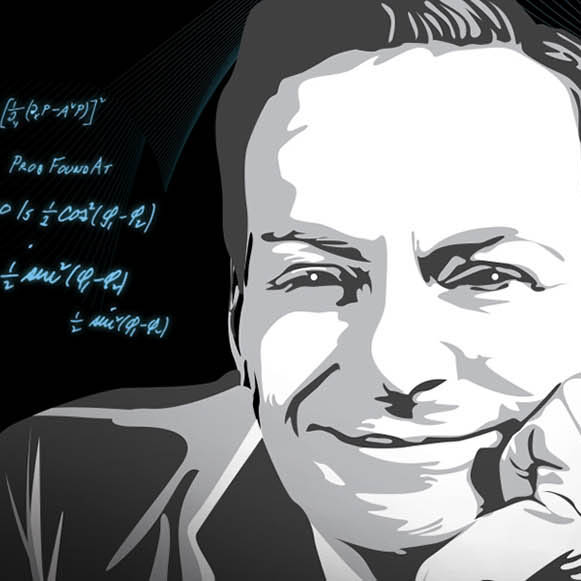 [1/∂y (∂xP-A²P)]²
PROB FOUND AT
0 IS 1/2 COS²(φ₁-φ₂)
1/2 sin²(φ₁-φ₂)
1/2 sin²(φ₁-φ₂)